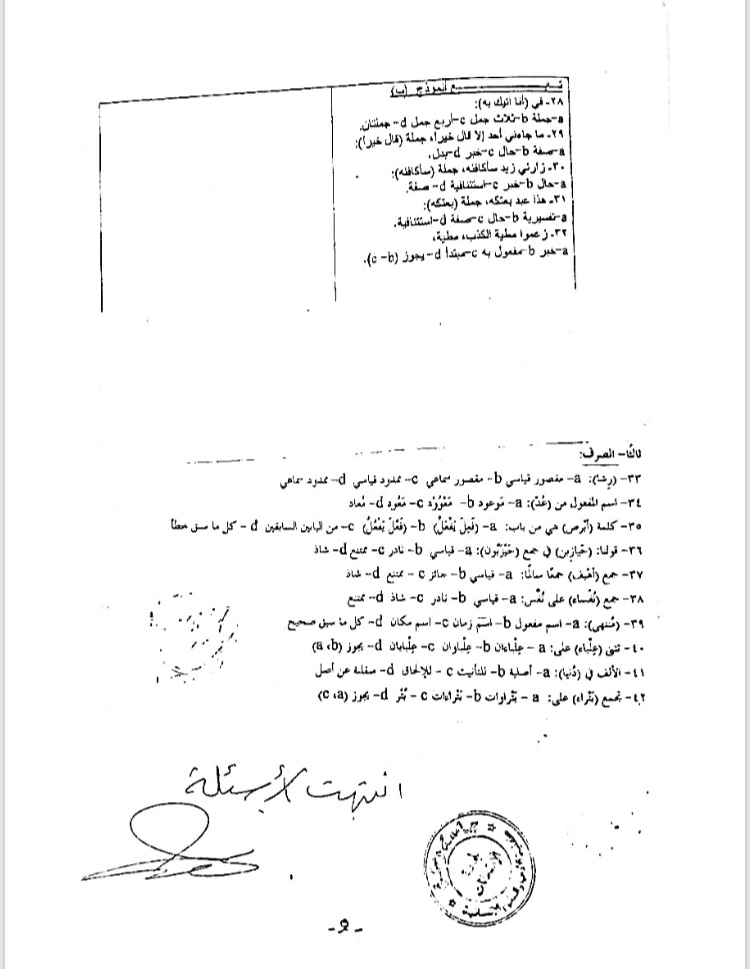 تـــــــابـــــــع أنموذج (ب)
٢٨- في (أنا أتوك به):
a-جملة b-ثلاث جمل c-أربع جمل d- جملتان.
٢٩- ما جاءني أحد إلا قال خيراً، جملة (قال خيراً):
a-صفة b-حال c-خبر d-بدل.
٣٠- زارني زيد سأكافئه، جملة (سأكافئه):
a-حال b-خبر c-استئنافية d- صفة.
٣١- هذا عبد بعتكه، جملة (بعتكه):
a-تفسيرية b-حال c-صفة d-استئنافية.
٣٢- زعموا مطية الكذب، مطية،
a-خبر b-مفعول به c-مبتدأ d- يجوز (c - b).
ثالثاً- الصرف:
٣٣- (رِضا): a- مقصور قياسي b- مقصور سماعي c- ممدود قياسي d- ممدود سماعي
٣٤- اسم المفعول من (عُدْ): a- مَوعود b- مَعْوُوْد c- مَعُود d- مُعاد
٣٥- كلمة (أبْرص) هي من باب: a- (فَعِلَ يَفْعَلُ) b- (فَعُلَ يَفْعُلُ) c- من البابين السابقين d- كل ما سبق خطأ
٣٦- قولنا: (حَيازبن) في جمع (حَيْزَبُون): a- قياسي b- نادر c- ممتنع d- شاذ
٣٧- جمع (أهْيف) جمعًا سالمًا: a- قياسي b- جائز c- ممتنع d- شاذ
٣٨- جمع (نُفَساء) على نُفَّس: a- قياسي b- نادر c- شاذ d- ممتنع
٣٩- (مُنتهى): a- اسم مفعول b- اسم زمان c- اسم مكان d- كل ما سبق صحيح
٤٠- تثنى (عِلْباء) على: a- عِلْباءان b- عِلْباوان c- عِلْبايان d- يجوز (a، b)
٤١- الألف في (دُنيا): a- أصلية b- للتأنيث c- للإلحاق d- منقلبة عن أصل
٤٢- تجمع (بَتْراء) على: a- بَتْراوات b- بَتْراءات c- بُتْر d- يجوز (a، c)
انتهت الأسئلة
-٩-